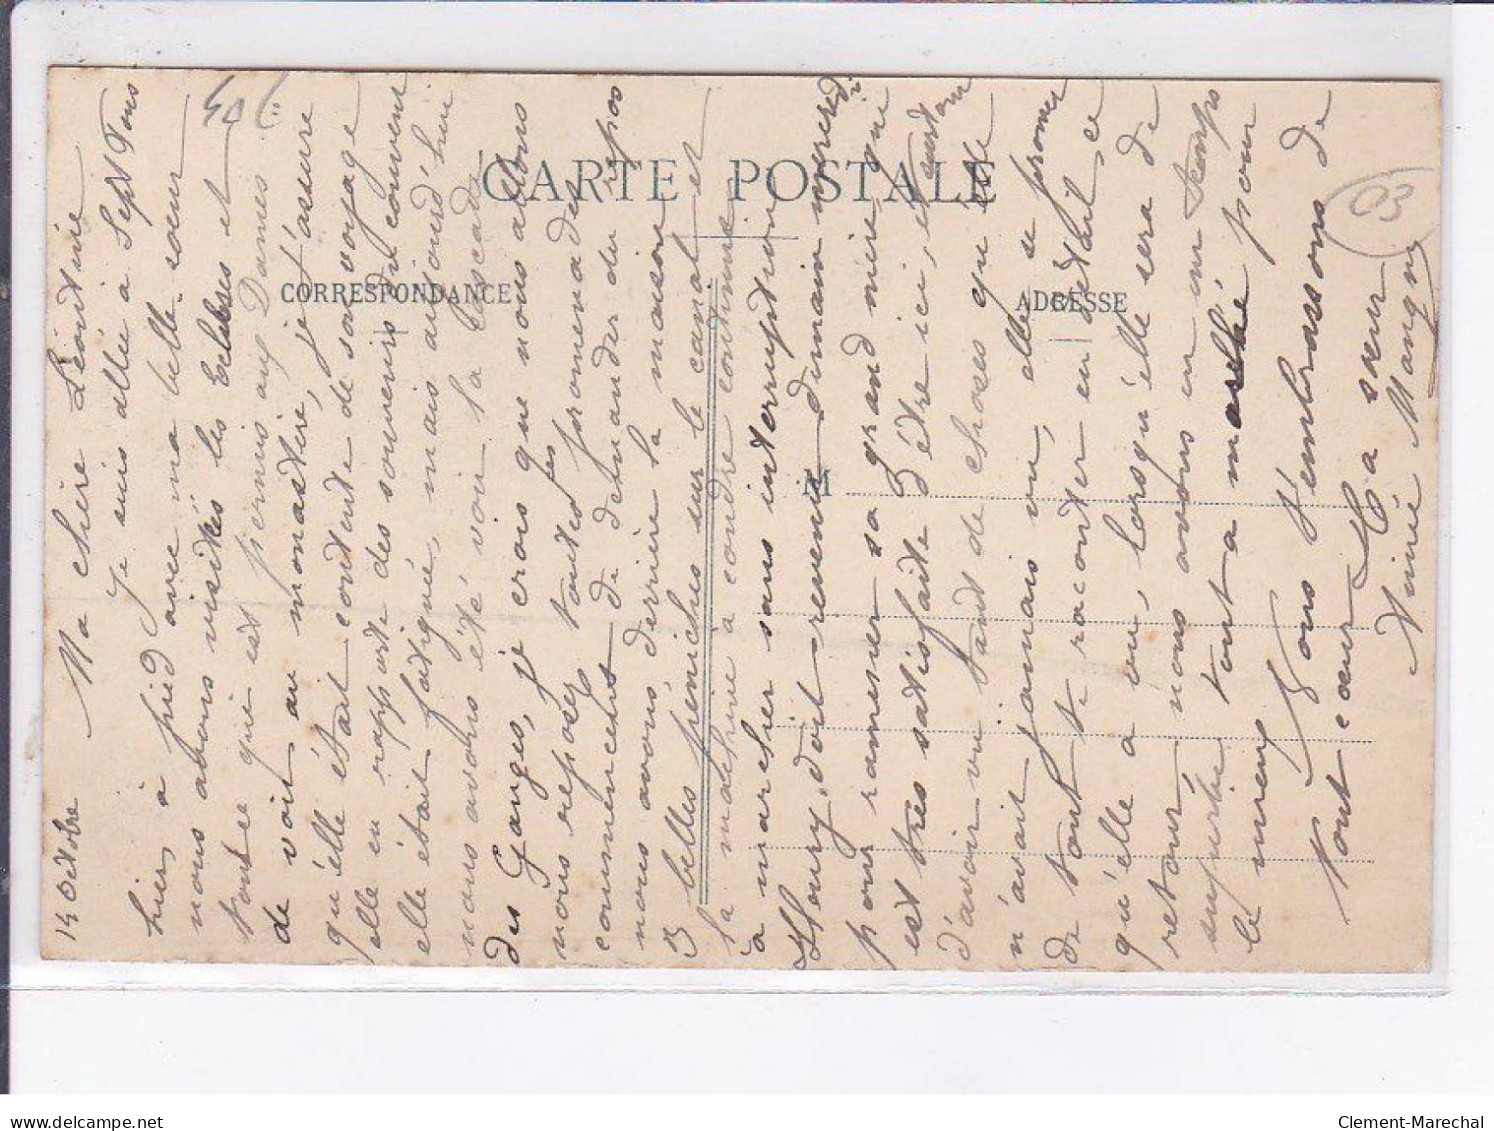 14 Octobre
Ma chère Léontine
Je suis allée à Sept Fons
hier, à pied avec ma belle-sœur
nous avons visités les Celebses et
tout ce qui est permis aux Dames
de voir au monastère, je t'assure
qu'elle était contente de son voyage
elle en rapporte des souvenirs du couvent
elle était fatiguée, mais aujourd'hui
nous avons été voir la Cascade
des Ganges, je crois que nous allons
nous reposer toutes les promenades
commencent de demander du repos
nous avons derrière la maison
3 belles péniches sur le canal et
la machine à coudre continue
à marcher sans interruption
Henry doit revenir demain mercredi
pour ramener sa grand mère, qui
est très satisfaite d'être ici, et surtout
d'avoir vu tant de choses que elle
n'avait jamais vu, elle se promet
de tout te raconter en détail, ce
qu'elle a vu, lorsqu'elle sera de
retour, nous avons eu un temps
superbe tout a marché pour
le mieux
Nous t'embrassons de
tout cœur
Ta sœur
Aimé Mangny
CARTE POSTALE
CORRESPONDANCE
ADRESSE
M
03
delcampe.net
Clement-Marechal